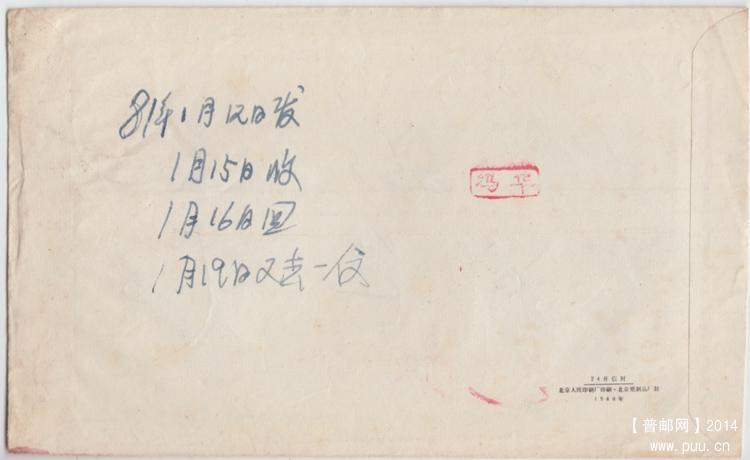 81年1月12日发
1月15日收
1月16日回
1月19日又去一信
冯华
24开信封
北京人民印刷厂印刷·北京纸制品厂制
1980年
【普邮网】2014
www.puu.cn